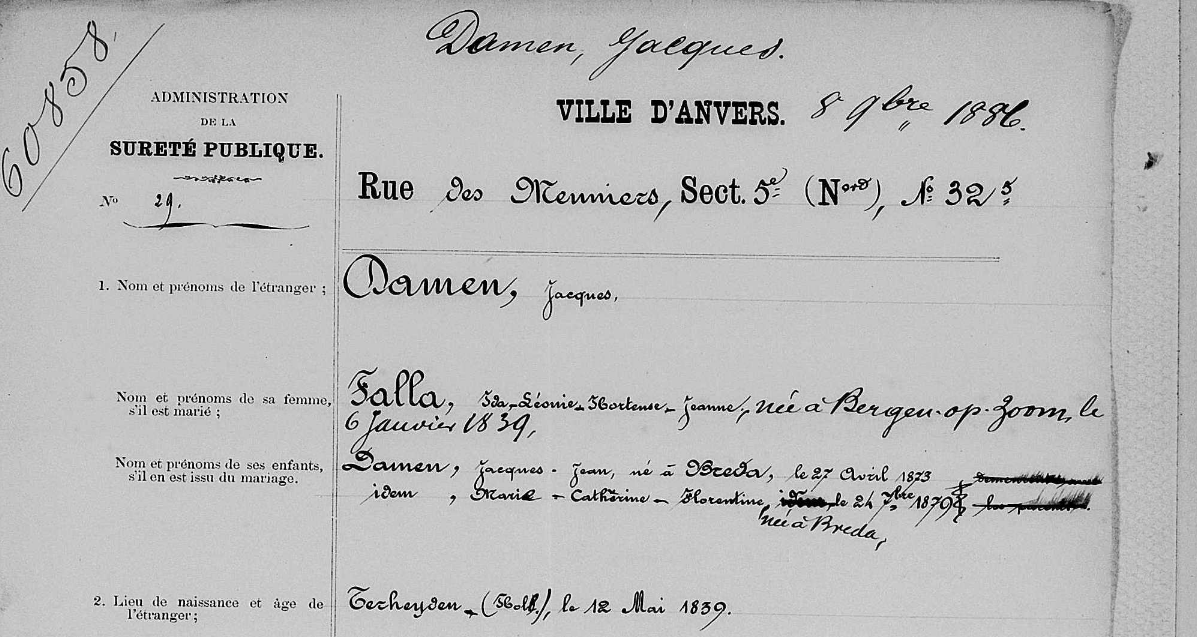 60858.
Damen, Jacques.
ADMINISTRATION
DE LA
SURETÉ PUBLIQUE.
No 29.
VILLE D'ANVERS. 8 9bre 1886.
Rue des Menniers, Sect. 5e (Nord), No 32 5
1. Nom et prénoms de l'étranger ;
Damen, Jacques,
Nom et prénoms de sa femme,
s'il est marié ;
Falla, Ida-Léonie-Hortense-Jeanne, née à Bergen-op-Zoom, le
6 Janvier 1839,
Nom et prénoms de ses enfants,
s'il en est issu du mariage.
Damen, Jacques-Jean, né à Breda, le 27 Avril 1873
idem, Marie-Cathérine-Florentine, idem, le 24 7bre 1879
née à Breda,
2. Lieu de naissance et âge de
l'étranger ;
Terheyden (Holl.), le 12 Mai 1839.